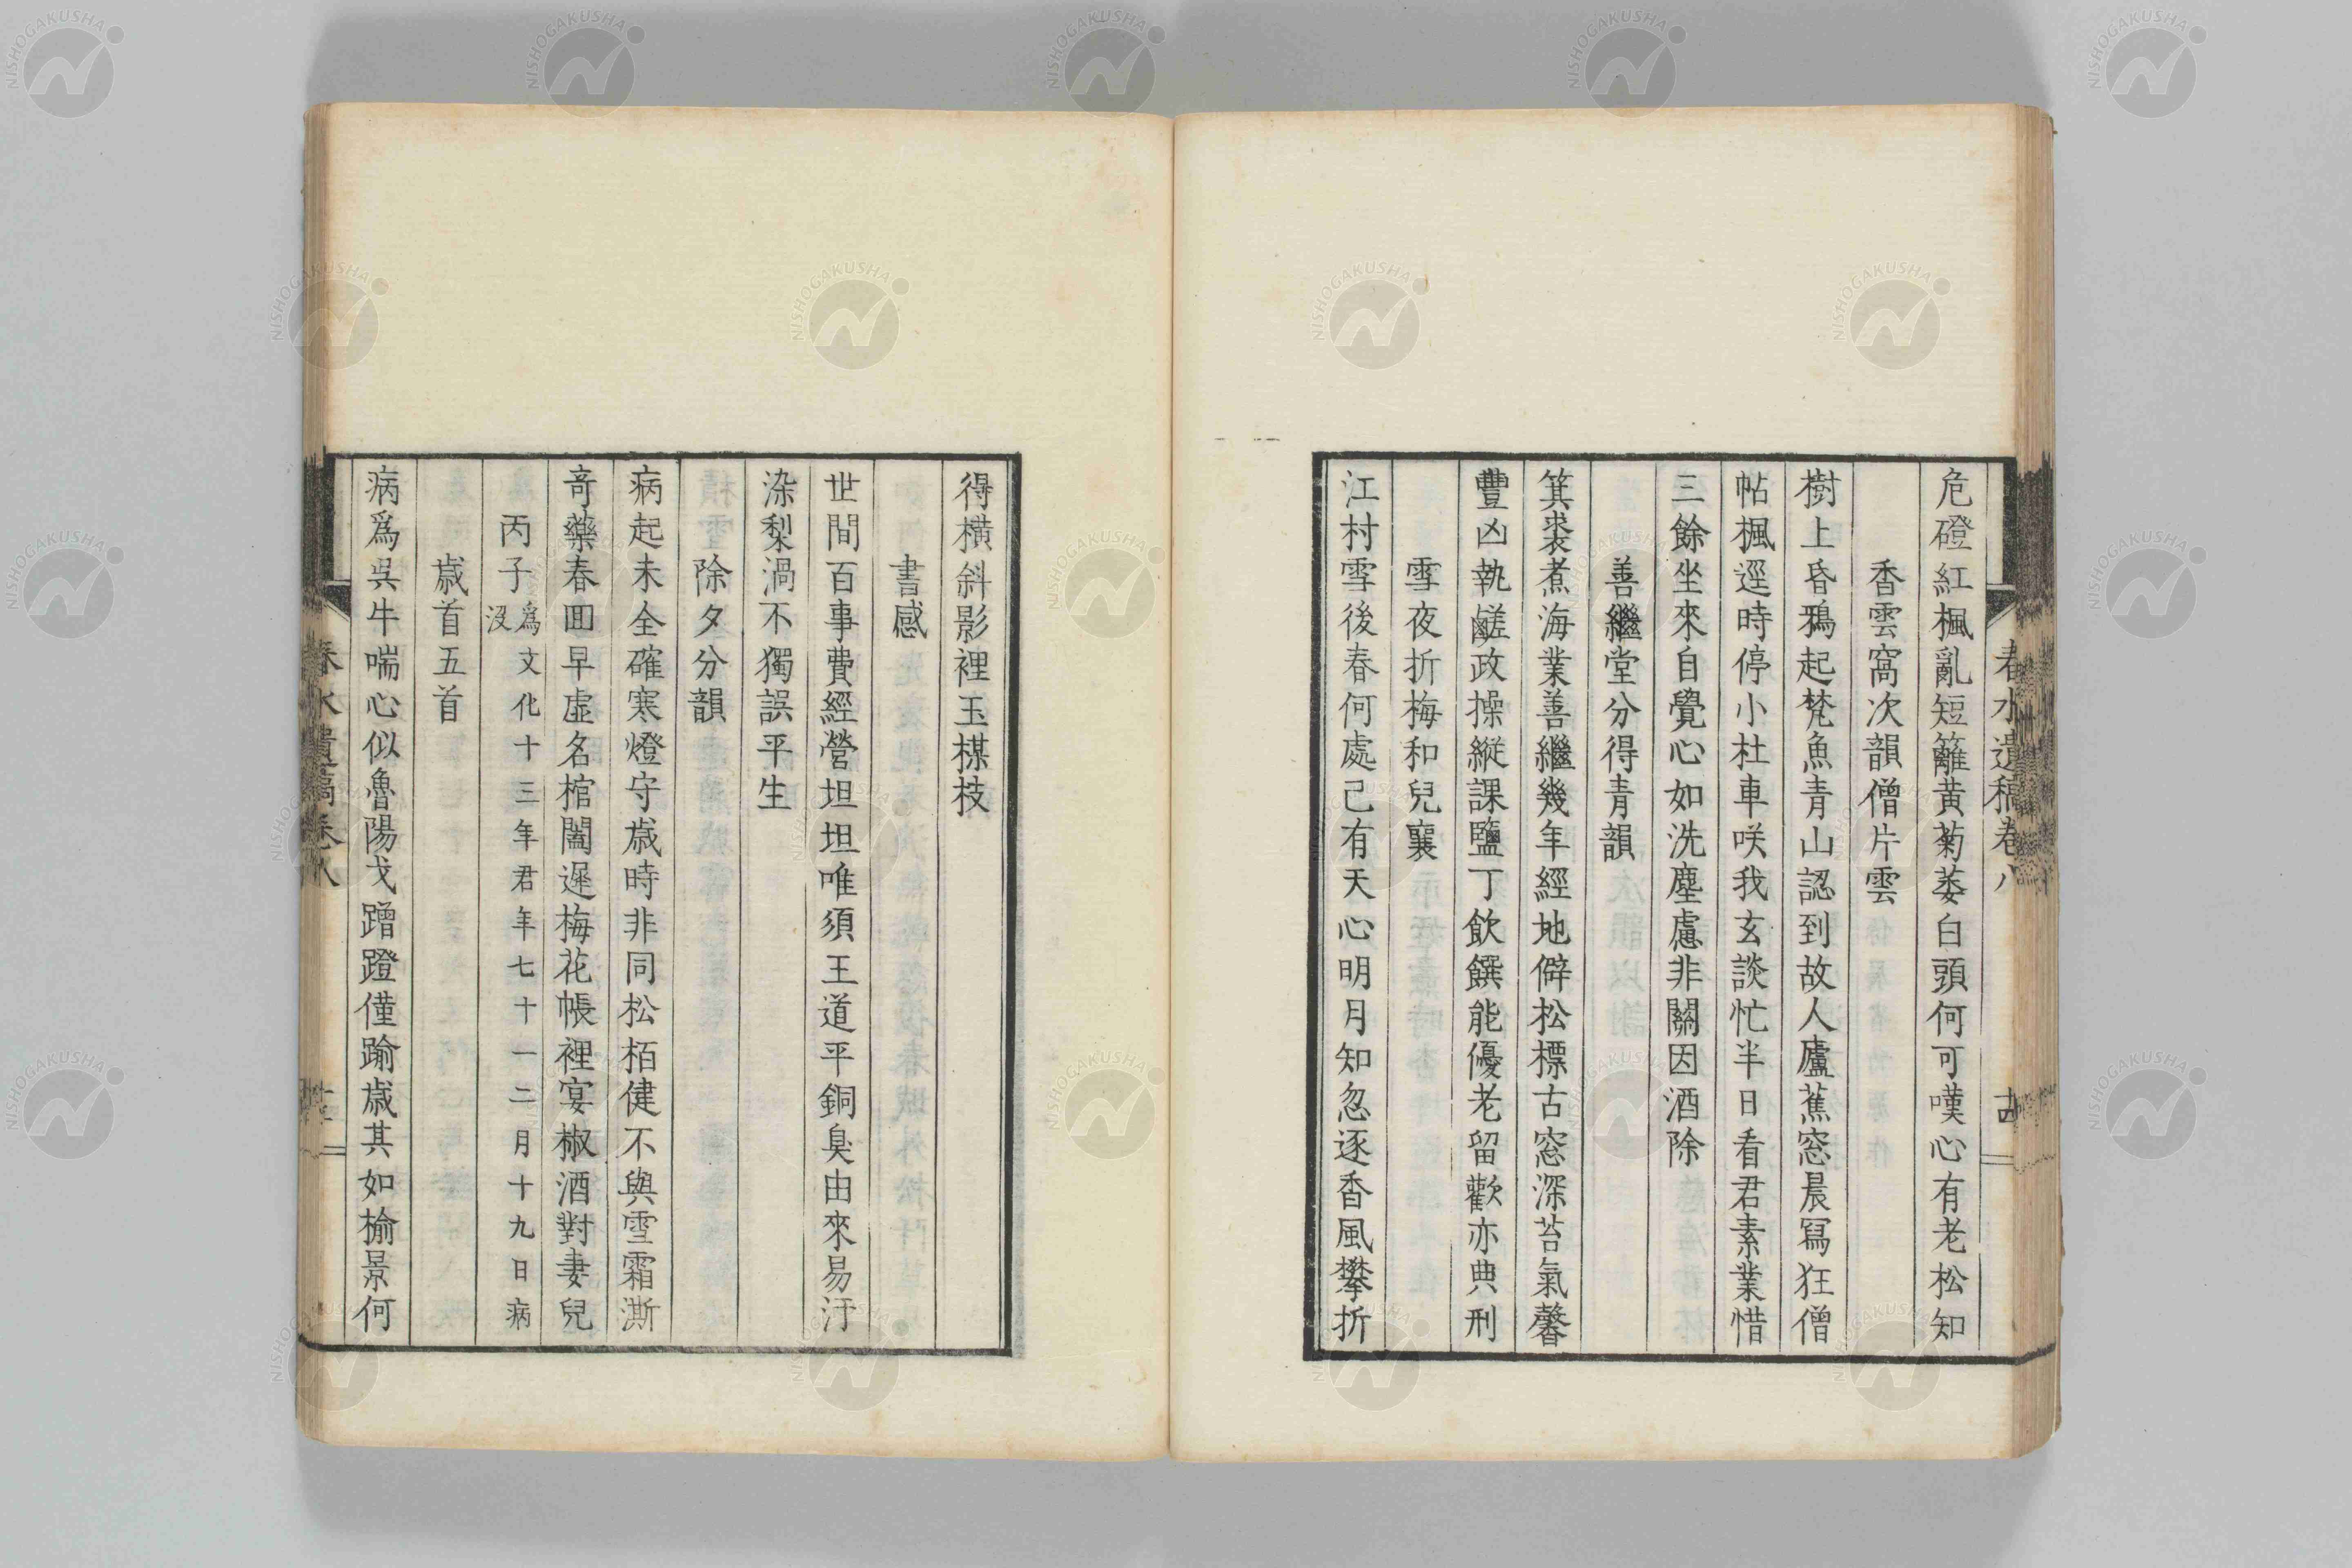 春水遺稿卷八
危磴紅楓亂短籬黃菊萎白頭何可嘆心有老松知
香雲窩次韻僧片雲
樹上昏鴉起梵魚青山認到故人廬蕉窓晨寫狂僧
帖楓逕時停小杜車咲我玄談忙半日看君素業惜
三餘坐來自覺心如洗塵慮非關因酒除
善繼堂分得青韻
箕裘煮海業善繼幾年經地僻松標古窓深苔氣馨
豐凶執鹺政操縱課鹽丁飲饌能優老留歡亦典刑
雪夜折梅和兒襄
江村雪後春何處己有天心明月知忽逐香風攀折
得橫斜影裡玉槑枝
書感
世間百事費經營坦坦唯須王道平銅臭由來易汙
染梨渦不獨誤平生
除夕分韻
病起未全確寒燈守歲時非同松栢健不與雪霜澌
奇藥春囬早虛名棺闔遲梅花帳裡宴椒酒對妻兒
丙子爲文化十三年君年七十一二月十九日病
沒
歲首五首
病爲吳牛喘心似魯陽戈蹭蹬僅踰歲其如榆景何
春水遺稿卷八
NISHOGAKUSHA